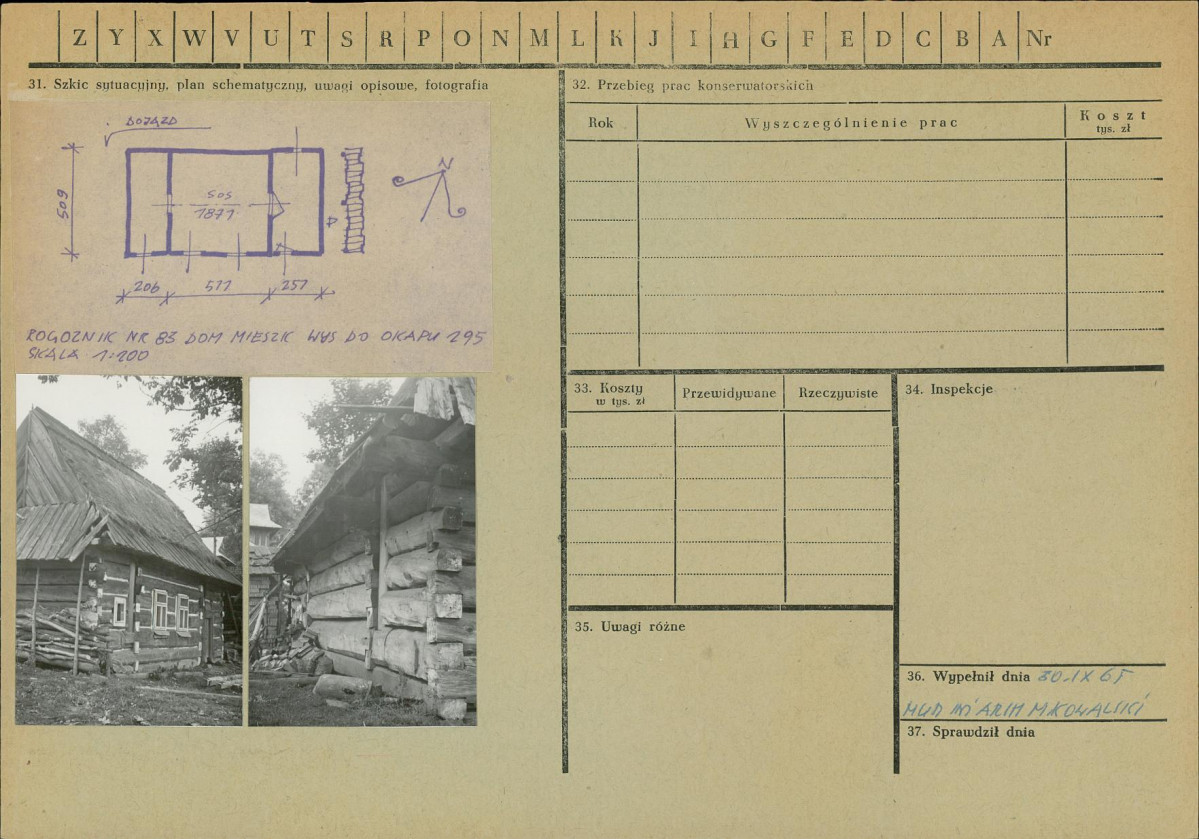 Z Y X W V U T S R P O N M L K J I H G F E D C B A Nr
31. Szkic sytuacyjny, plan schematyczny, uwagi opisowe, fotografia
DOJAZD
509
SOS
1871
N
206 511 251
ROGOŹNIK NR 83 DOM MIESZK WYS DO OKAPU 295
SKALA 1:200
32. Przebieg prac konserwatorskich
Rok
Wyszczególnienie prac
Koszt
tys. zł
33. Koszty
w tys. zł
Przewidywane
Rzeczywiste
34. Inspekcje
35. Uwagi różne
36. Wypełnił dnia 30.IX 65
MGR ARCH M KOWALSKI
37. Sprawdził dnia